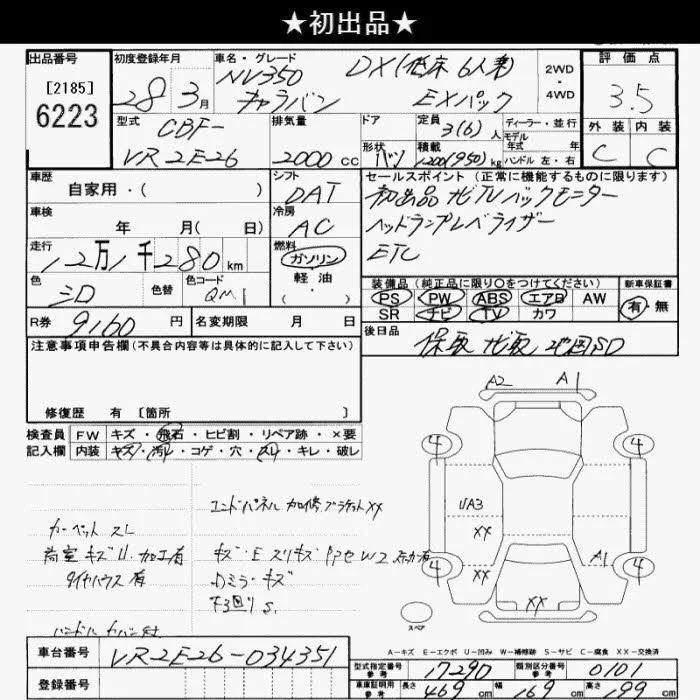 ★初出品★
出品番号 初度登録年月 車名・グレード 評価点
[2185]
6223
28年3月
NV350 DX(低床 6人乗)
キャラバン EXパック
2WD・4WD
3.5
外装 内装
C C
型式 CBF-
VR2E26
排気量
2000cc
ドア
形状 バン
定員 3(6)人
積載 1200(950)kg
ディーラー・並行
モデル年式 年
ハンドル 左・右
車歴
自家用・( )
車検
年 月( 日)
走行
12万1千280km
色
シロ
色替
色コード
QM1
シフト
DAT
冷房
AC
燃料
ガソリン
軽油
( ・ )
セールスポイント (正常に機能するものに限ります)
初出品 ナビTV バックモニター
ヘッドランプレベライザー
ETC
装備品(純正品に限り○をつけてください)
PS PW ABS エアB AW
SR ナビ TV カワ
新車保証書
有・無
R券 9160円
名変期限 月 日
後日品
保取 ナビ取 地図SD
注意事項申告欄(不具合内容等は具体的に記入して下さい)
修復歴 有 [箇所 ]
検査員記入欄
FW キズ・飛石・ヒビ割・リペア跡・×要
内装 キズ・汚れ・コゲ・穴・スレ・キレ・破レ
エンドパネル 加修 ブラケットXX
カーペット スレ
荷室 キズ凹 加工有
タイヤハウス 有
キズ・E スリキズ
Dミラーキズ
下回りS
ハンドル カバー付
A2 A1
4 4
UA3
XX
A1
4 4
XX
XX
スペア
A-キズ E-エクボ U-凹み W-補修跡 S-サビ C-腐食 XX-交換済
車台番号 VR2E26-034351
登録番号
型式指定番号 参考 17290
類別区分番号 参考 0101
車庫証明用 参考 長さ 469cm 幅 169cm 高さ 199cm